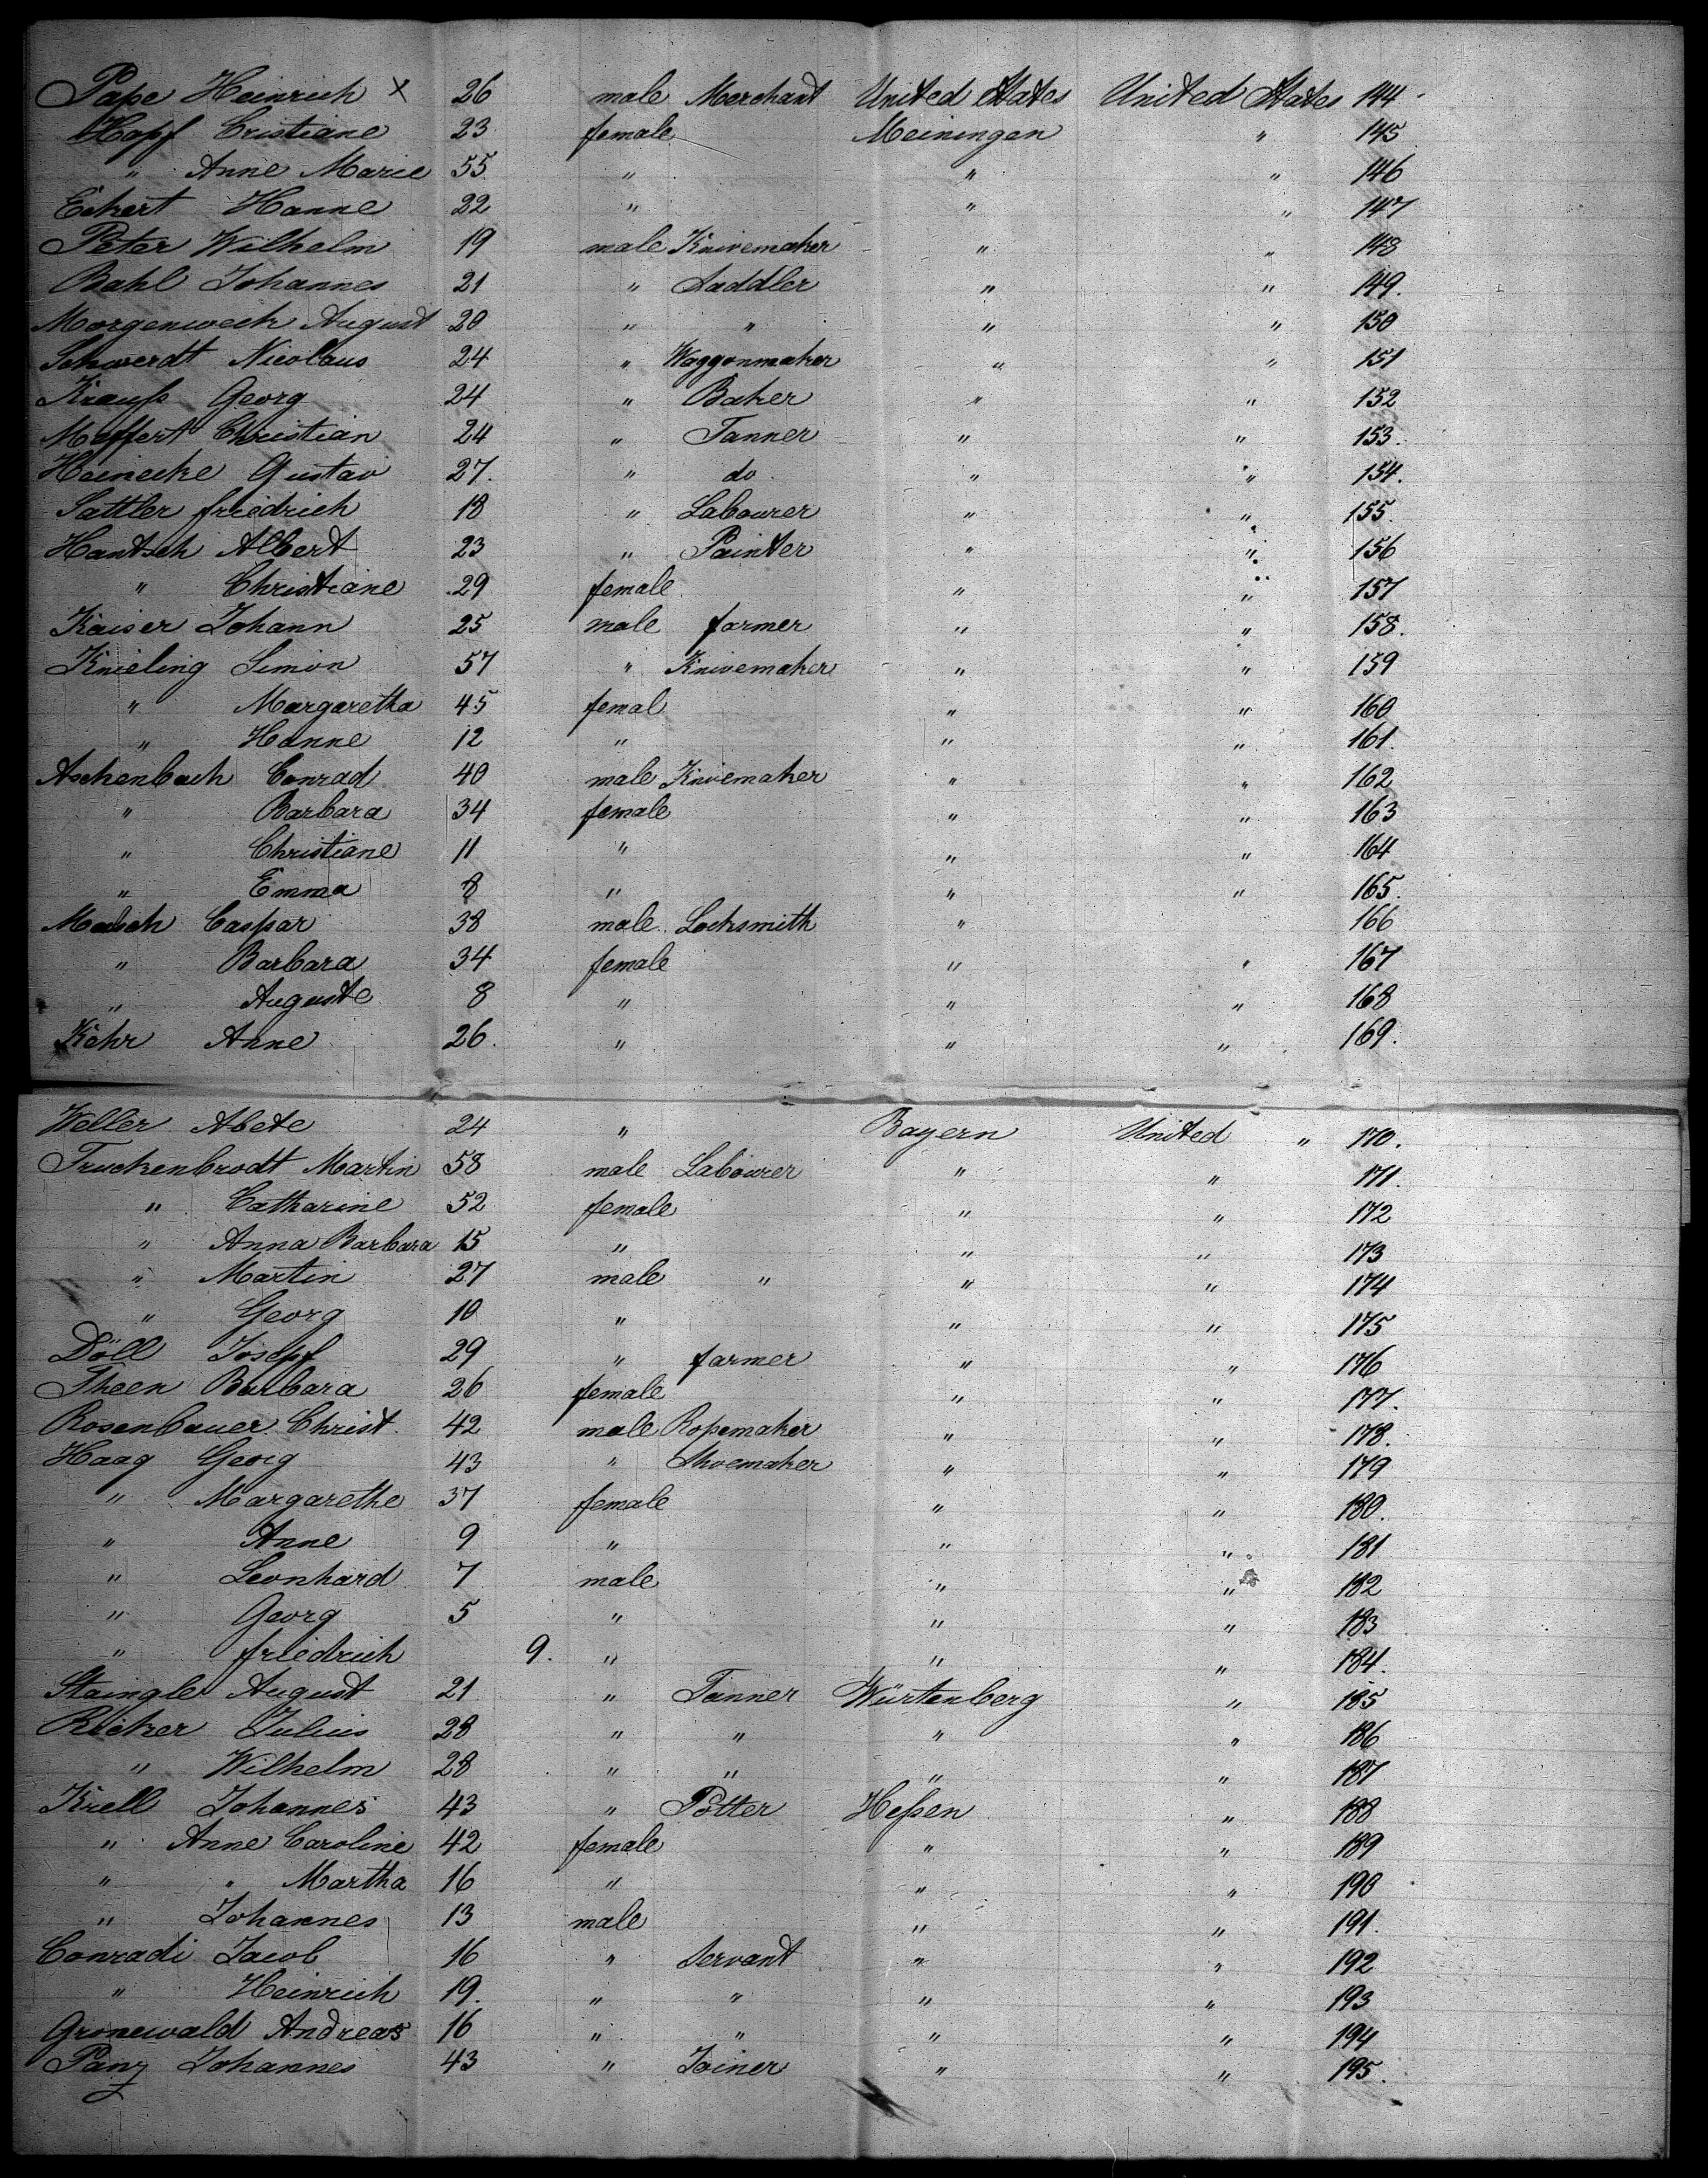 Pape Heinrich x 26 male Merchant United States United States 144
Hopf Cristiane 23 female Meiningen " 145
" Anne Marie 55 " " " 146
Eckert Hanne 22 " " " 147
Peter Wilhelm 19 male Knivemaker " " 148
Bahl Johannes 21 " Saddler " " 149.
Morgenweck August 20 " " " " 150
Schwerdt Nicolaus 24 " Waggonmaker " " 151
Krauß Georg 24 " Baker " " 152
Meffert Christian 24 " Tanner " " 153.
Heinecke Gustav 27. " do " " 154.
Sattler friedrich 18 " Labourer " " 155.
Hantsch Albert 23 " Painter " " 156
" Christiane 29 female " " 157
Kaiser Johann 25 male farmer " " 158.
Knieling Simon 57 " Knivemaker " " 159
" Margaretha 45 femal " " 160
" Hanne 12 " " " 161.
Aschenbach Conrad 40 male Knivemaker " " 162
" Barbara 34 female " " 163
" Christiane 11 " " " 164
" Emma 8 " " " 165.
Caspar 38 male Locksmith " 166
" Barbara 34 female " " 167
" Auguste 8 " " " 168
Kehr Anne 26. " " " 169.
Weller Abete 24 " Bayern United " 170.
Truckenbrodt Martin 58 male Labourer " " 171.
" Catharine 52 female " " 172
" Anna Barbara 15 " " " 173
" Martin 27 male " " " 174
" Georg 10 " " " 175
Döll Josepf 29 " farmer " " 176
Theen Barbara 26 female " " 177.
Rosenbauer Christ. 42 male Ropemaker " " 178.
Haag Georg 43 " Shoemaker " " 179
" Margarethe 37 female " " 180.
" Anne 9 " " " 181
" Leonhard 7 male " " 182
" Georg 5 " " " 183
" friedrich 9. " " " 184.
Staingle August 21 " Tanner Würtenberg " 185
Ricker Julius 28 " " " " 186
" Wilhelm 28 " " " " 187
Krell Johannes 43 " Potter Heßen " 188
" Anne Caroline 42 female " " 189
" " Martha 16 " " " 190
" Johannes 13 male " " 191.
Conradi Jacob 16 " Servant " " 192
" Heinrich 19. " " " " 193
Gronewald Andreas 16 " " " " 194
Panz Johannes 43 " Joiner " " 195.